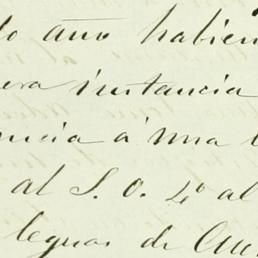 do año habien
era instancia
ncia á una
al S. O. 4º al
leguas de Cue